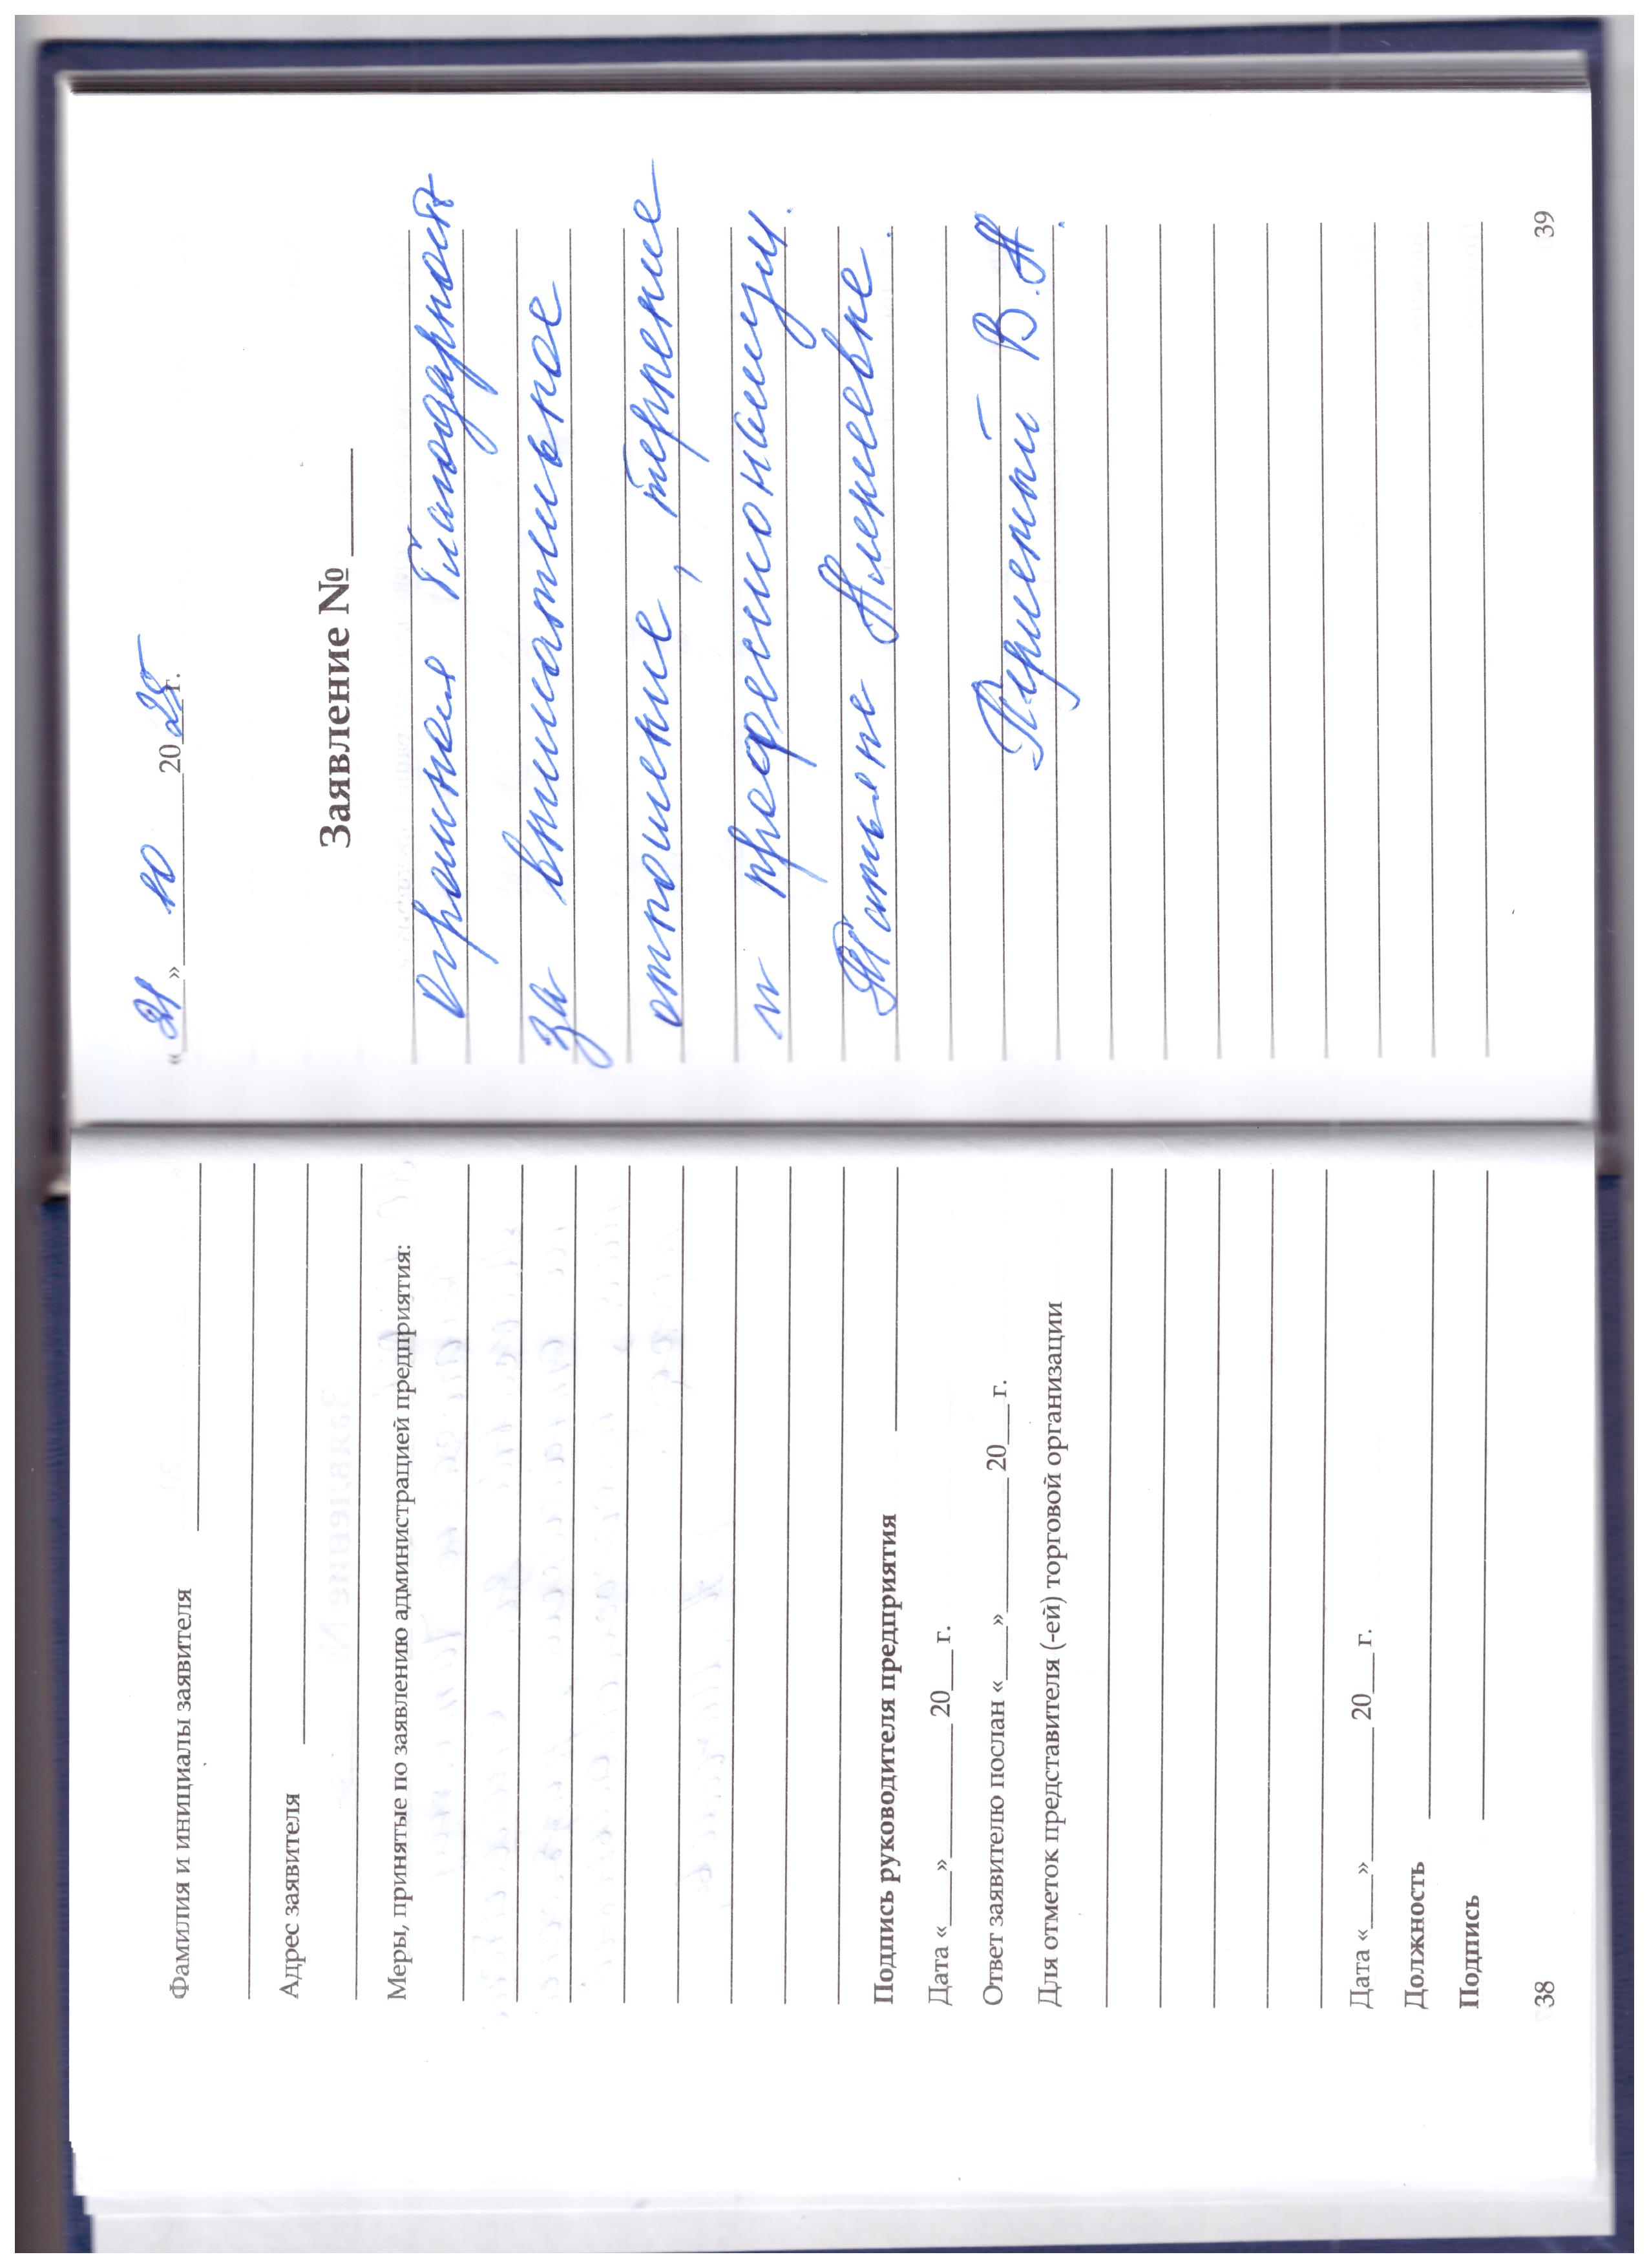 Фамилия и инициалы заявителя
Адрес заявителя
Меры, принятые по заявлению администрацией предприятия:
Подпись руководителя предприятия
Дата «___»__________ 20___ г.
Ответ заявителю послан «____»__________ 20___ г.
Для отметок представителя (-ей) торговой организации
Дата «____»__________ 20___ г.
Должность
Подпись
38
«21» 10 2025 г.
Заявление № ____
Огромная благодарность
за внимательное
отношение, терпение
и професионализм.
Татьяне Алексеевне.
В.А.
39